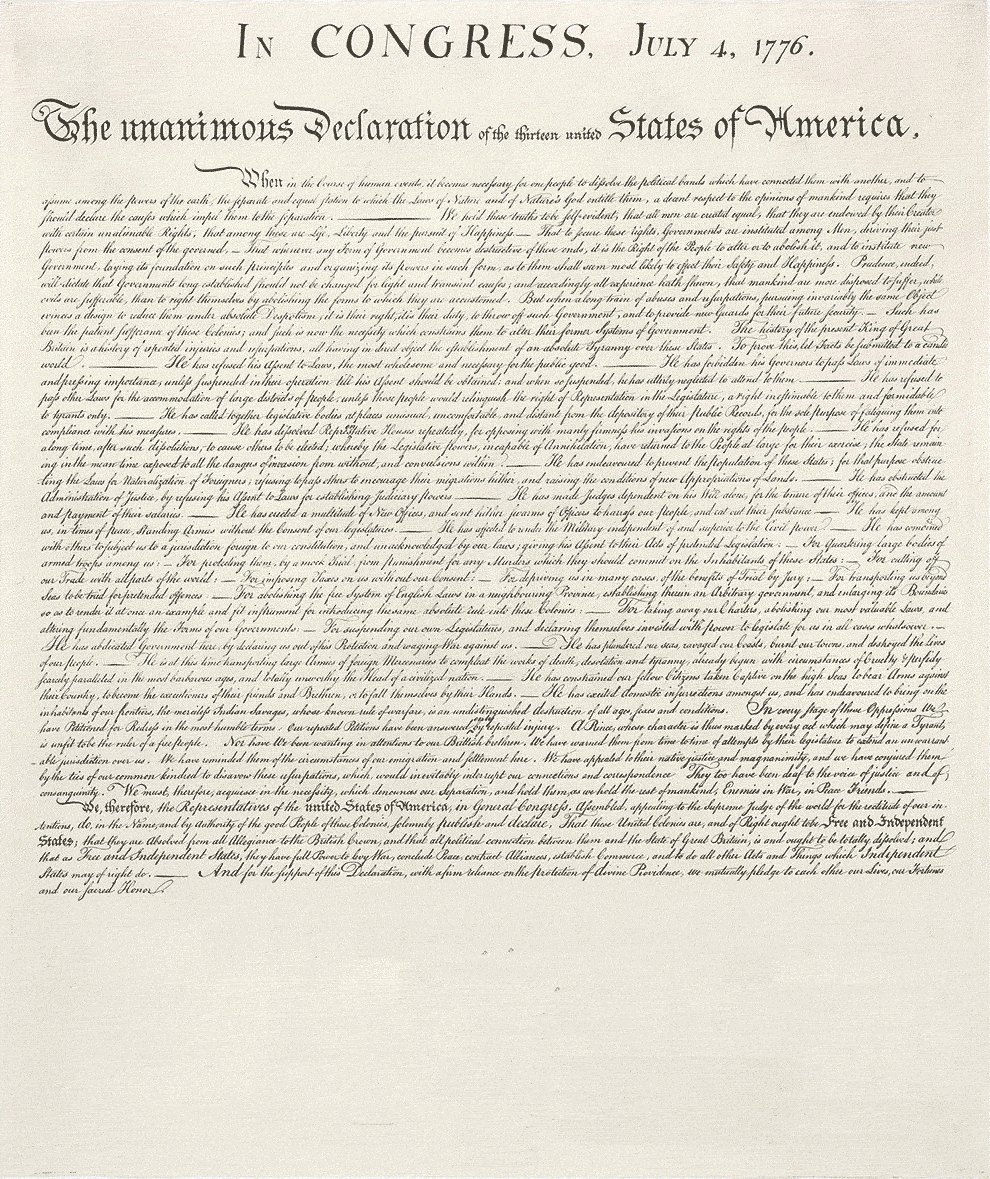 In CONGRESS, July 4, 1776.
The unanimous Declaration of the thirteen united States of America,
When in the Course of human events, it becomes necessary for one people to dissolve the political bands which have connected them with another, and to
assume among the powers of the earth, the separate and equal station to which the Laws of Nature and of Nature's God entitle them, a decent respect to the opinions of mankind requires that they
should declare the causes which impel them to the separation. ——— We hold these truths to be self-evident, that all men are created equal, that they are endowed by their Creator
with certain unalienable Rights, that among these are Life, Liberty and the pursuit of Happiness.— That to secure these rights, Governments are instituted among Men, deriving their just
powers from the consent of the governed,— That whenever any Form of Government becomes destructive of these ends, it is the Right of the People to alter or to abolish it, and to institute new
Government, laying its foundation on such principles and organizing its powers in such form, as to them shall seem most likely to effect their Safety and Happiness. Prudence, indeed,
will dictate that Governments long established should not be changed for light and transient causes; and accordingly all experience hath shewn, that mankind are more disposed to suffer, while
evils are sufferable, than to right themselves by abolishing the forms to which they are accustomed. But when a long train of abuses and usurpations, pursuing invariably the same Object
evinces a design to reduce them under absolute Despotism, it is their right, it is their duty, to throw off such Government, and to provide new Guards for their future security.— Such has
been the patient sufferance of these Colonies; and such is now the necessity which constrains them to alter their former Systems of Government. The history of the present King of Great
Britain is a history of repeated injuries and usurpations, all having in direct object the establishment of an absolute Tyranny over these States. To prove this, let Facts be submitted to a candid
world. ——— He has refused his Assent to Laws, the most wholesome and necessary for the public good. ——— He has forbidden his Governors to pass Laws of immediate
and pressing importance, unless suspended in their operation till his Assent should be obtained; and when so suspended, he has utterly neglected to attend to them. ——— He has refused to
pass other Laws for the accommodation of large districts of people, unless those people would relinquish the right of Representation in the Legislature, a right inestimable to them and formidable
to tyrants only. ——— He has called together legislative bodies at places unusual, uncomfortable, and distant from the depository of their Public Records, for the sole purpose of fatiguing them into
compliance with his measures. ——— He has dissolved Representative Houses repeatedly, for opposing with manly firmness his invasions on the rights of the people. ——— He has refused for
a long time, after such dissolutions, to cause others to be elected; whereby the Legislative powers, incapable of Annihilation, have returned to the People at large for their exercise; the State remain
ing in the mean time exposed to all the dangers of invasion from without, and convulsions within. ——— He has endeavoured to prevent the population of these States; for that purpose obstruc
ting the Laws for Naturalization of Foreigners; refusing to pass others to encourage their migrations hither, and raising the conditions of new Appropriations of Lands. ——— He has obstructed the
Administration of Justice, by refusing his Assent to Laws for establishing Judiciary powers ——— He has made Judges dependent on his Will alone, for the tenure of their offices, and the amount
and payment of their salaries. ——— He has erected a multitude of New Offices, and sent hither swarms of Officers to harass our people, and eat out their substance. ——— He has kept among
us, in times of peace, Standing Armies without the Consent of our legislatures. ——— He has affected to render the Military independent of and superior to the Civil power. ——— He has combined
with others to subject us to a jurisdiction foreign to our constitution, and unacknowledged by our laws; giving his Assent to their Acts of pretended Legislation: — For Quartering large bodies of
armed troops among us: — For protecting them, by a mock Trial, from punishment for any Murders which they should commit on the Inhabitants of these States: — For cutting off
our Trade with all parts of the world: — For imposing Taxes on us without our Consent: — For depriving us in many cases, of the benefits of Trial by Jury: — For transporting us beyond
Seas to be tried for pretended offences — For abolishing the free System of English Laws in a neighbouring Province, establishing therein an Arbitrary government, and enlarging its Boundaries
so as to render it at once an example and fit instrument for introducing the same absolute rule into these Colonies: — For taking away our Charters, abolishing our most valuable Laws, and
altering fundamentally the Forms of our Governments: — For suspending our own Legislatures, and declaring themselves invested with power to legislate for us in all cases whatsoever. —
He has abdicated Government here, by declaring us out of his Protection and waging War against us. — He has plundered our seas, ravaged our Coasts, burnt our towns, and destroyed the Lives
of our people. — He is at this time transporting large Armies of foreign Mercenaries to compleat the works of death, desolation and tyranny, already begun with circumstances of Cruelty & perfidy
scarcely paralleled in the most barbarous ages, and totally unworthy the Head of a civilized nation. — He has constrained our fellow Citizens taken Captive on the high Seas to bear Arms against
their Country, to become the executioners of their friends and Brethren, or to fall themselves by their Hands. — He has excited domestic insurrections amongst us, and has endeavoured to bring on the
inhabitants of our frontiers, the merciless Indian Savages, whose known rule of warfare, is an undistinguished destruction of all ages, sexes and conditions. In every stage of these Oppressions We
have Petitioned for Redress in the most humble terms: Our repeated Petitions have been answered only by repeated injury. A Prince, whose character is thus marked by every act which may define a Tyrant,
is unfit to be the ruler of a free people. Nor have We been wanting in attentions to our Brittish brethren. We have warned them from time to time of attempts by their legislature to extend an unwarrant
able jurisdiction over us. We have reminded them of the circumstances of our emigration and settlement here. We have appealed to their native justice and magnanimity, and we have conjured them
by the ties of our common kindred to disavow these usurpations, which, would inevitably interrupt our connections and correspondence They too have been deaf to the voice of justice and of
consanguinity. We must, therefore, acquiesce in the necessity, which denounces our Separation, and hold them, as we hold the rest of mankind, Enemies in War, in Peace Friends. ———
We, therefore, the Representatives of the united States of America, in General Congress, Assembled, appealing to the Supreme Judge of the world for the rectitude of our in-
tentions, do, in the Name, and by Authority of the good People of these Colonies, solemnly publish and declare, That these United Colonies are, and of Right ought to be Free and Independent
States; that they are Absolved from all Allegiance to the British Crown, and that all political connection between them and the State of Great Britain, is and ought to be totally dissolved; and
that as Free and Independent States, they have full Power to levy War, conclude Peace, contract Alliances, establish Commerce, and to do all other Acts and Things which Independent
States may of right do. ——— And for the support of this Declaration, with a firm reliance on the protection of divine Providence, we mutually pledge to each other our Lives, our Fortunes
and our sacred Honor.